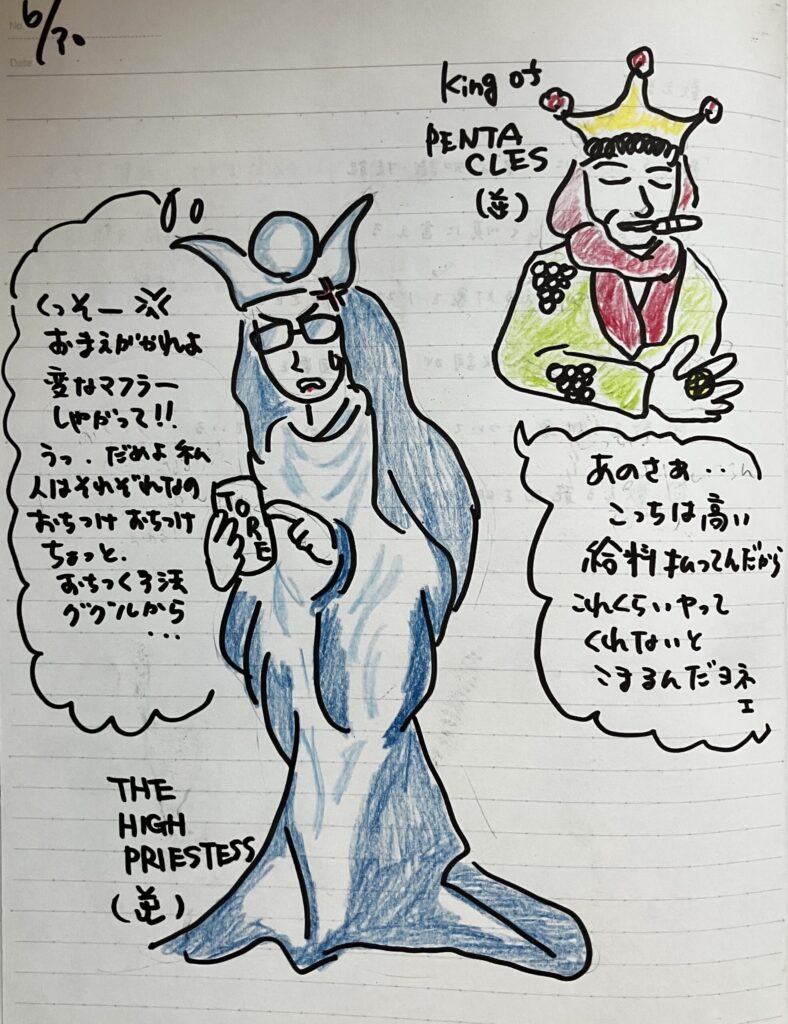 6/30
No.
Date
King of
PENTA
CLES
(逆)
くっそー
おまえがやれよ
変なマフラー
しやがって!!
うっ.だめよ私
人はそれぞれなの
おちつけ おちつけ
ちょっと.
おちつく方法
ググルから
...
TO
RE
あのさぁ..
こっちは高い
給料払ってんだから
これくらいヤって
くれないと
こまるんだヨネ
ェ
THE
HIGH
PRIESTESS
(逆)